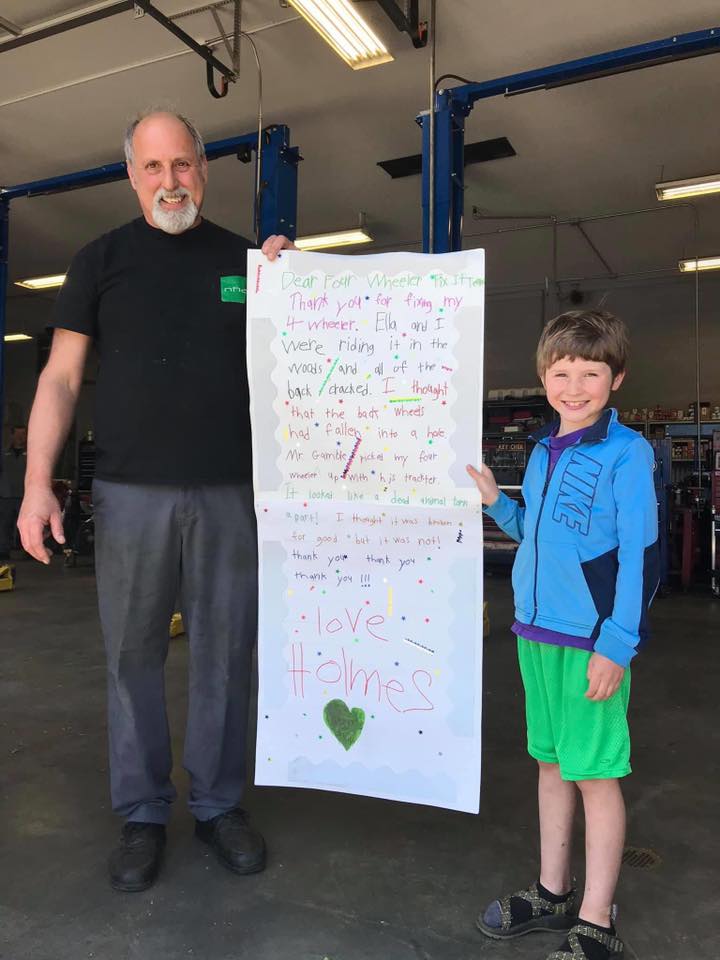 Dear Four Wheeler Fix It Team
Thank you for fixing my
4-wheeler. Ella and I
were riding it in the
woods and all of the
back cracked. I thought
that the back wheels
had fallen into a hole
Mr. Gamble picked my four
wheeler up with his trackter.
It looked like a dead animal torn
apart! I thought it was broken
for good but it was not!
thank you thank you
thank you !!!
love
Holmes
NIKE